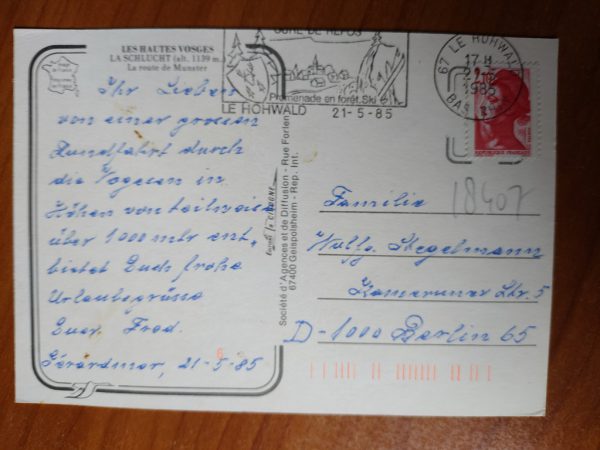 LES HAUTES VOSGES
LA SCHLUCHT (alt. 1139 m.)
La route de Munster
Ihr Lieben
von einer grossen
Rundfahrt durch
die Vogesen in
Höhen von teilweise
über 1000 mtr ent-
bietet Euch frohe
Urlaubsgrüsse
Euer Fred.
Gérardmer, 21-5-85
CURE DE REPOS
Promenade en forêt. Ski
LE HOHWALD 21-5-85
67 LE HOHWALD
17 H
1985
BAS RHIN
18407
Société d'Agences et de Diffusion - Rue Forlen
67400 Geispolsheim - Rep. Int.
Familie
Wolfg. Stegelmann
Kameruner Str. 5
D-1000 Berlin 65